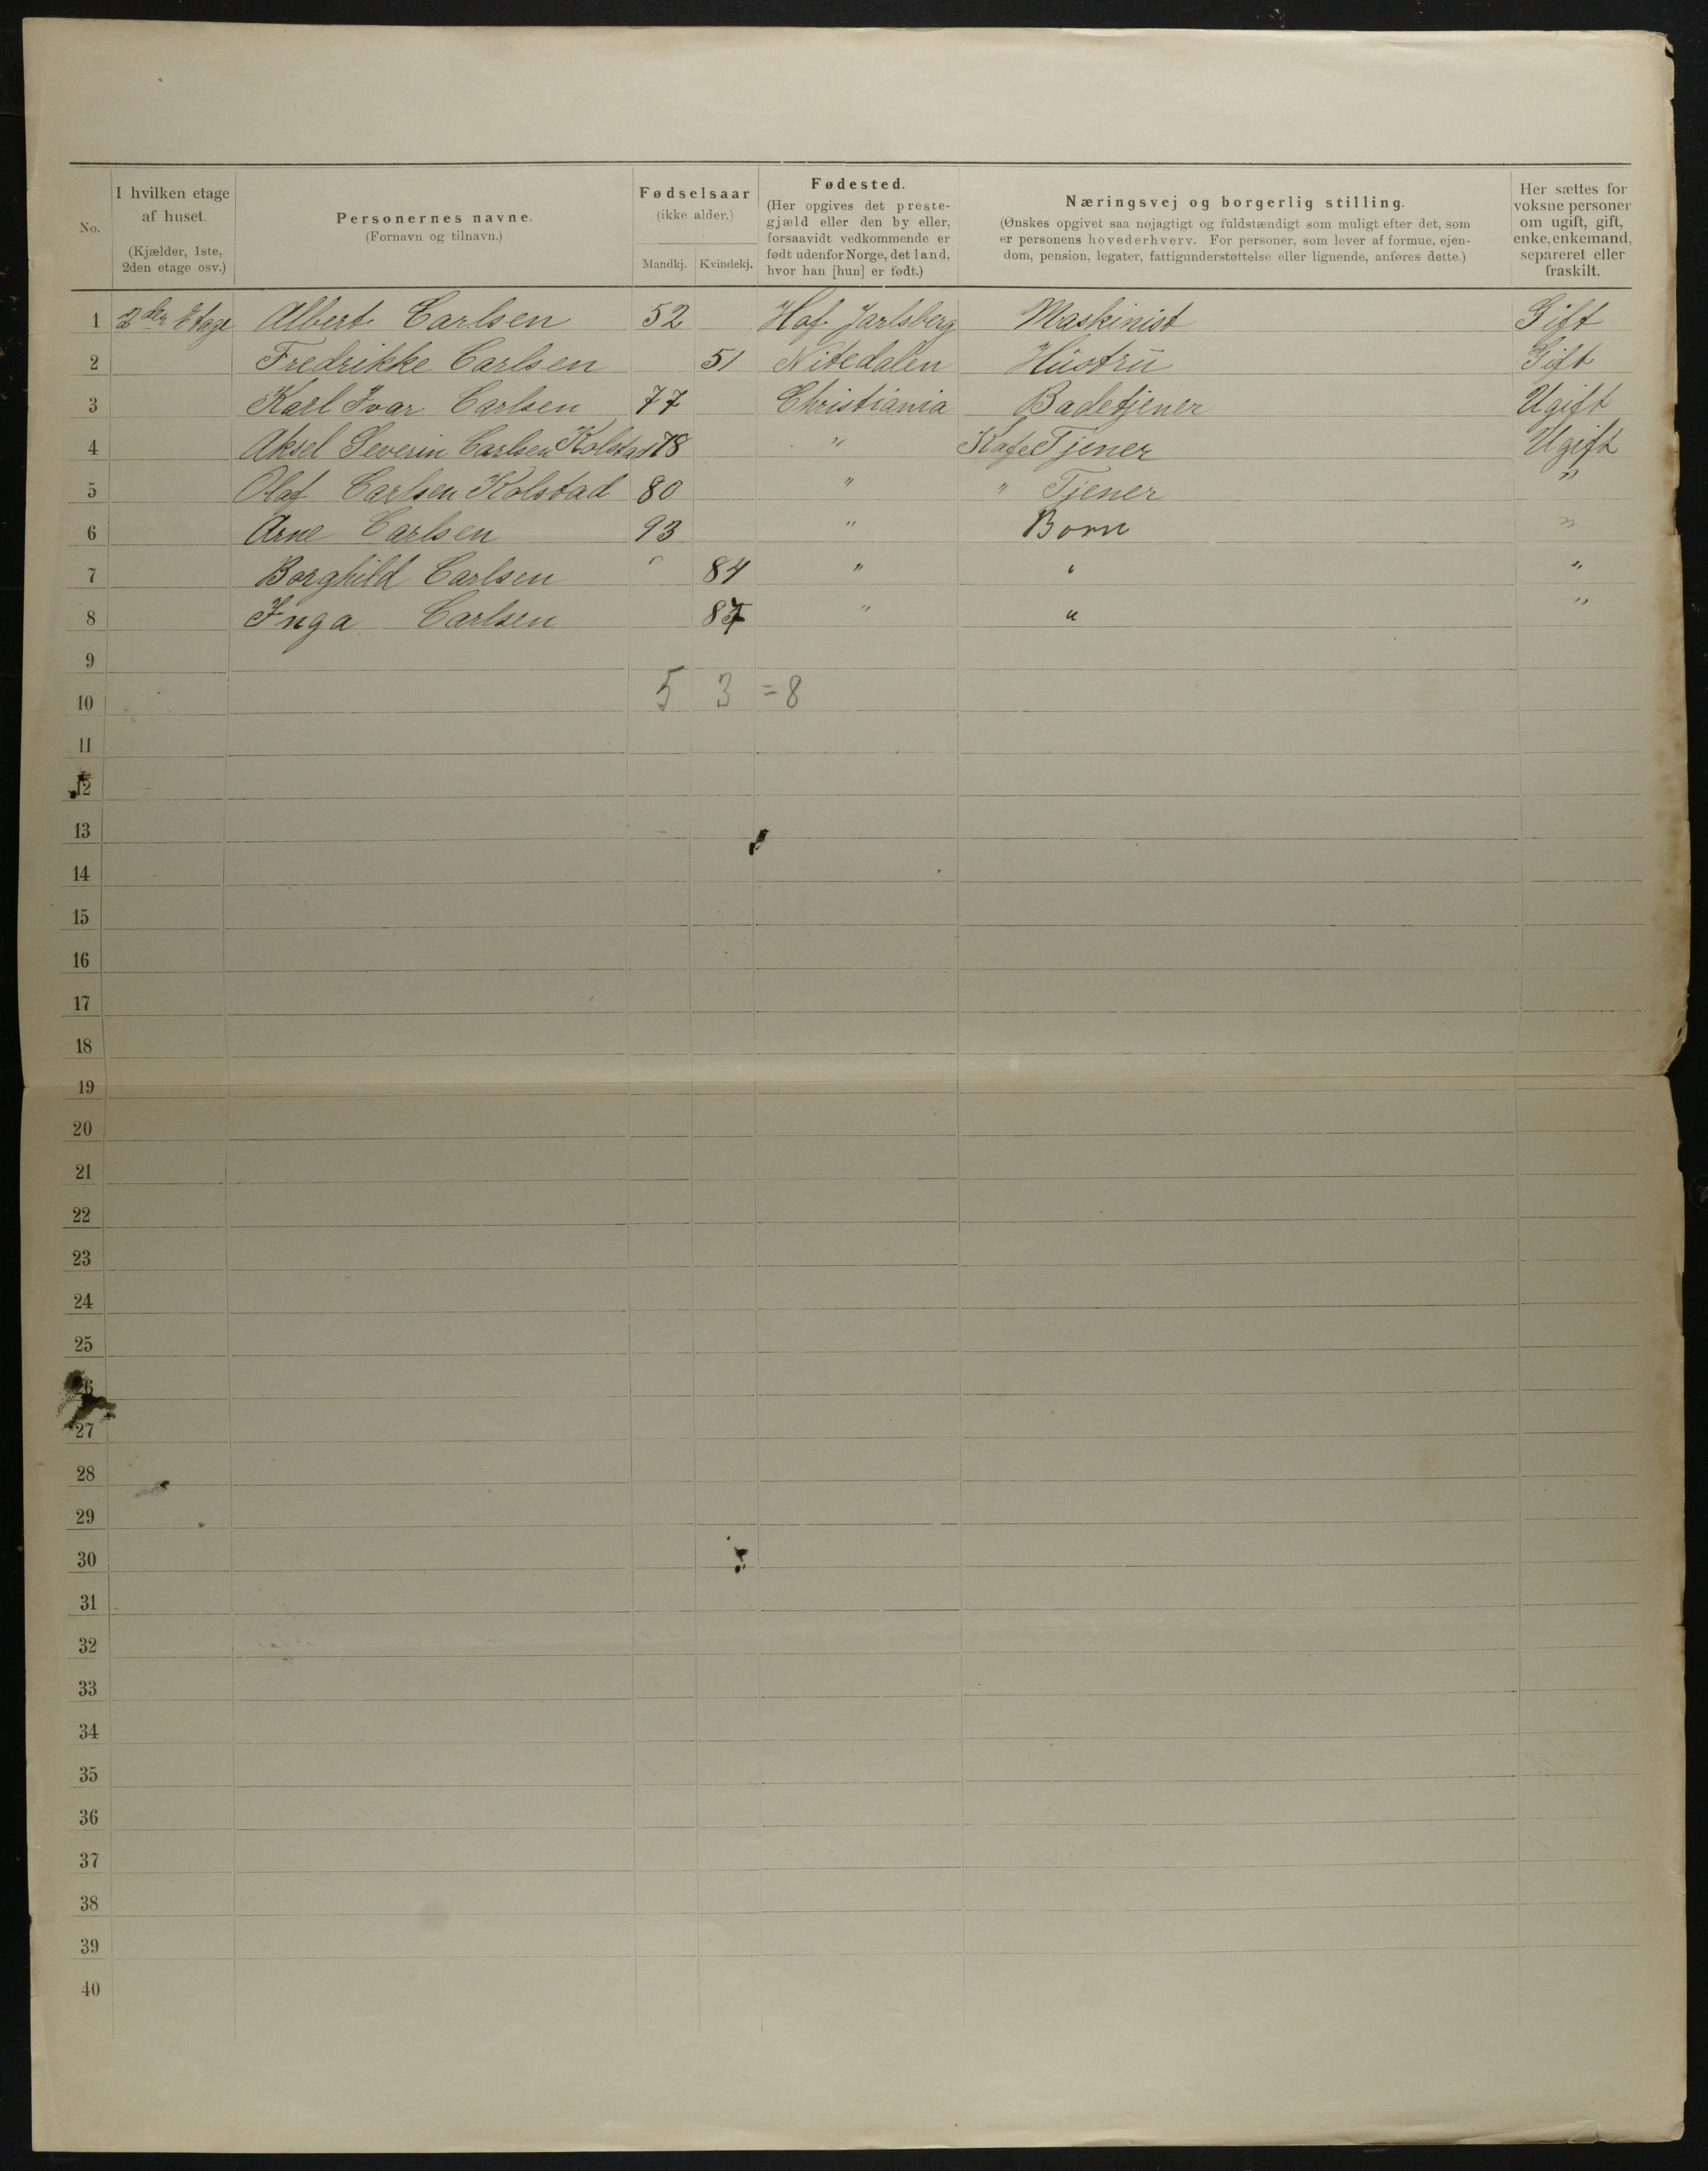 No. | I hvilken etage af huset. (Kjælder, 1ste, 2den etage osv.) | Personernes navne. (Fornavn og tilnavn.) | Fødselsaar (ikke alder.) Mandkj. | Kvindekj. | Fødested. (Her opgives det prestegjæld eller den by eller, forsaavidt vedkommende er født udenfor Norge, det land, hvor han [hun] er født.) | Næringsvej og borgerlig stilling. (Ønskes opgivet saa nøjagtigt og fuldstændigt som muligt efter det, som er personens hovederhverv. For personer, som lever af formue, ejendom, pension, legater, fattigunderstøttelse eller lignende, anføres dette.) | Her sættes for voksne personer om ugift, gift, enke, enkemand, separeret eller fraskilt.
1 2den Etage Albert Carlsen 52 Hof. Jarlsberg Maskinist Gift
2 Fredrikke Carlsen 51 Nitedalen Hustru Gift
3 Karl Ivar Carlsen 77 Christiania Badetjener Ugift
4 Aksel Severin Carlsen Kolstad 78 " KafeTjener Ugift
5 Olaf Carlsen Kolstad 80 " " Tjener "
6 Arne Carlsen 93 " Born "
7 Borghild Carlsen 84 " " "
8 Inga Carlsen 87 " " "
9
10 5 3 = 8
11
12
13
14
15
16
17
18
19
20
21
22
23
24
25
26
27
28
29
30
31
32
33
34
35
36
37
38
39
40